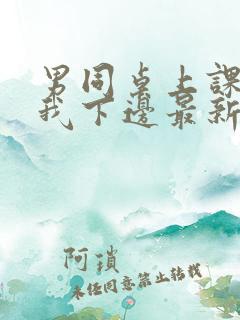 男同桌上課
我下邊最新
阿瑣
未经同意禁止转载